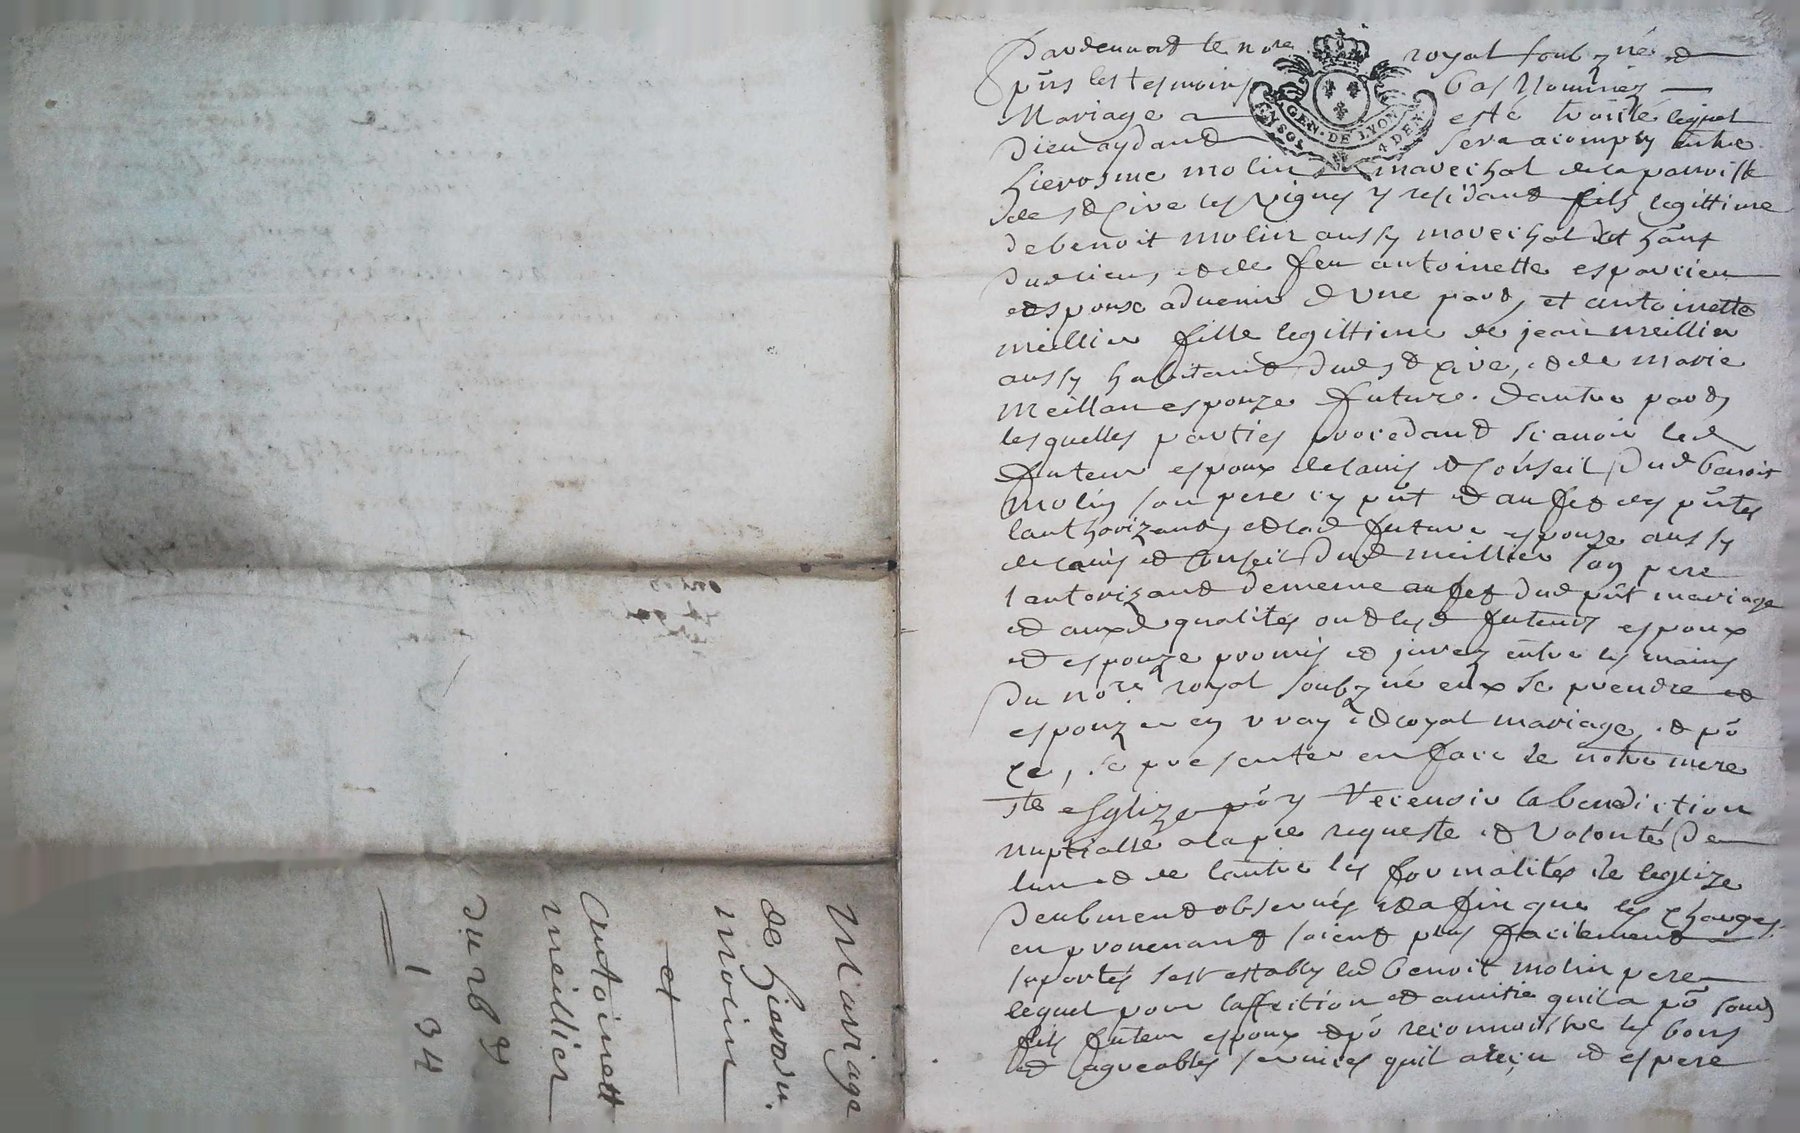 Pardevant le nore royal soubzné &
pñs les tesmoins bas Nommez
Mariage a esté traité lequel
Dieu aydant sera acomply entre
GEN. DE LYON
4 DEN
hierosme molin marechal de la parroisse
de st Cire les vignes y residant fils legittime
de benoit molin aussy marechal
dud lieu, et de feu antoinette esparcieu
espoux advenir d'Une part, et antoinette
meillier fille legittime de jean meillier
aussy habitant dud st Cire, et de marie
Meillan espouze future. dautre part
lesquelles parties procedant scavoir led
futeur espoux de lavis et conseil Dud benoit
molin son pere cy pñt et au fet des pñtes
lauthorizant, et lad future espouze aussy
de lavis et conseil Dud meillier son pere
lautorizant de meme au fet Dud pñt mariage
et auxd qualités ont lesd futeurs espoux
et espouze promis et jurez entre les mains
Du nore royal soubzné eux se prendre et
espouzer en vray et loyal mariage, et pō
ce, se presenter en face de notre mere
ste esglize pō y recevoir la benediction
nuptialle a la pre requeste et Volonté De
lun et de lautre les formalités de leglize
Deubment observés et afin que les charges
en provenant soient plus facilement
suportés sest estably led benoit molin pere
lequel pour laffection et amitié quil a pō sond
fils futeur espoux et pō reconnoistre les bons
et agreables services quil a reçu et espere
Mariage
de hierosme
molin
et
Antoinett
meillier
Du
1734